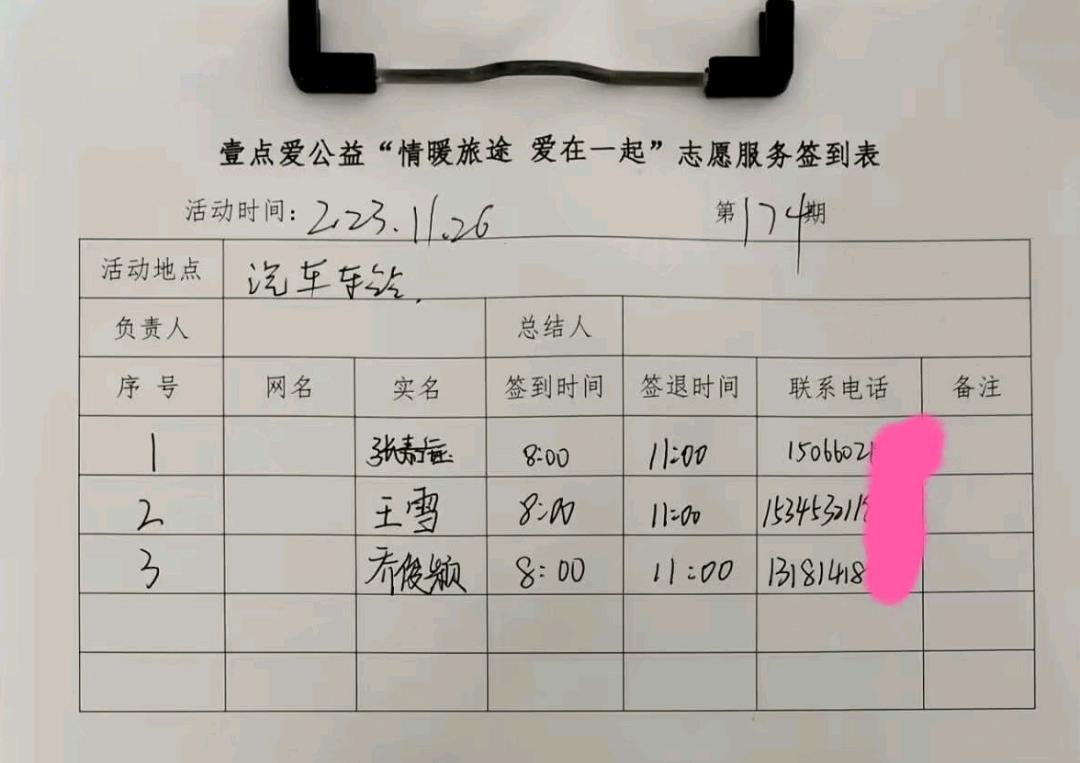 壹点爱公益“情暖旅途 爱在一起”志愿服务签到表
活动时间: 2023.11.26 第174期
活动地点 汽车车站.
负责人 总结人
序号 网名 实名 签到时间 签退时间 联系电话 备注
1 8:00 11:00 1506602
2 王雪 8:00 11:00 153453211
3 乔俊颖 8:00 11:00 13181418